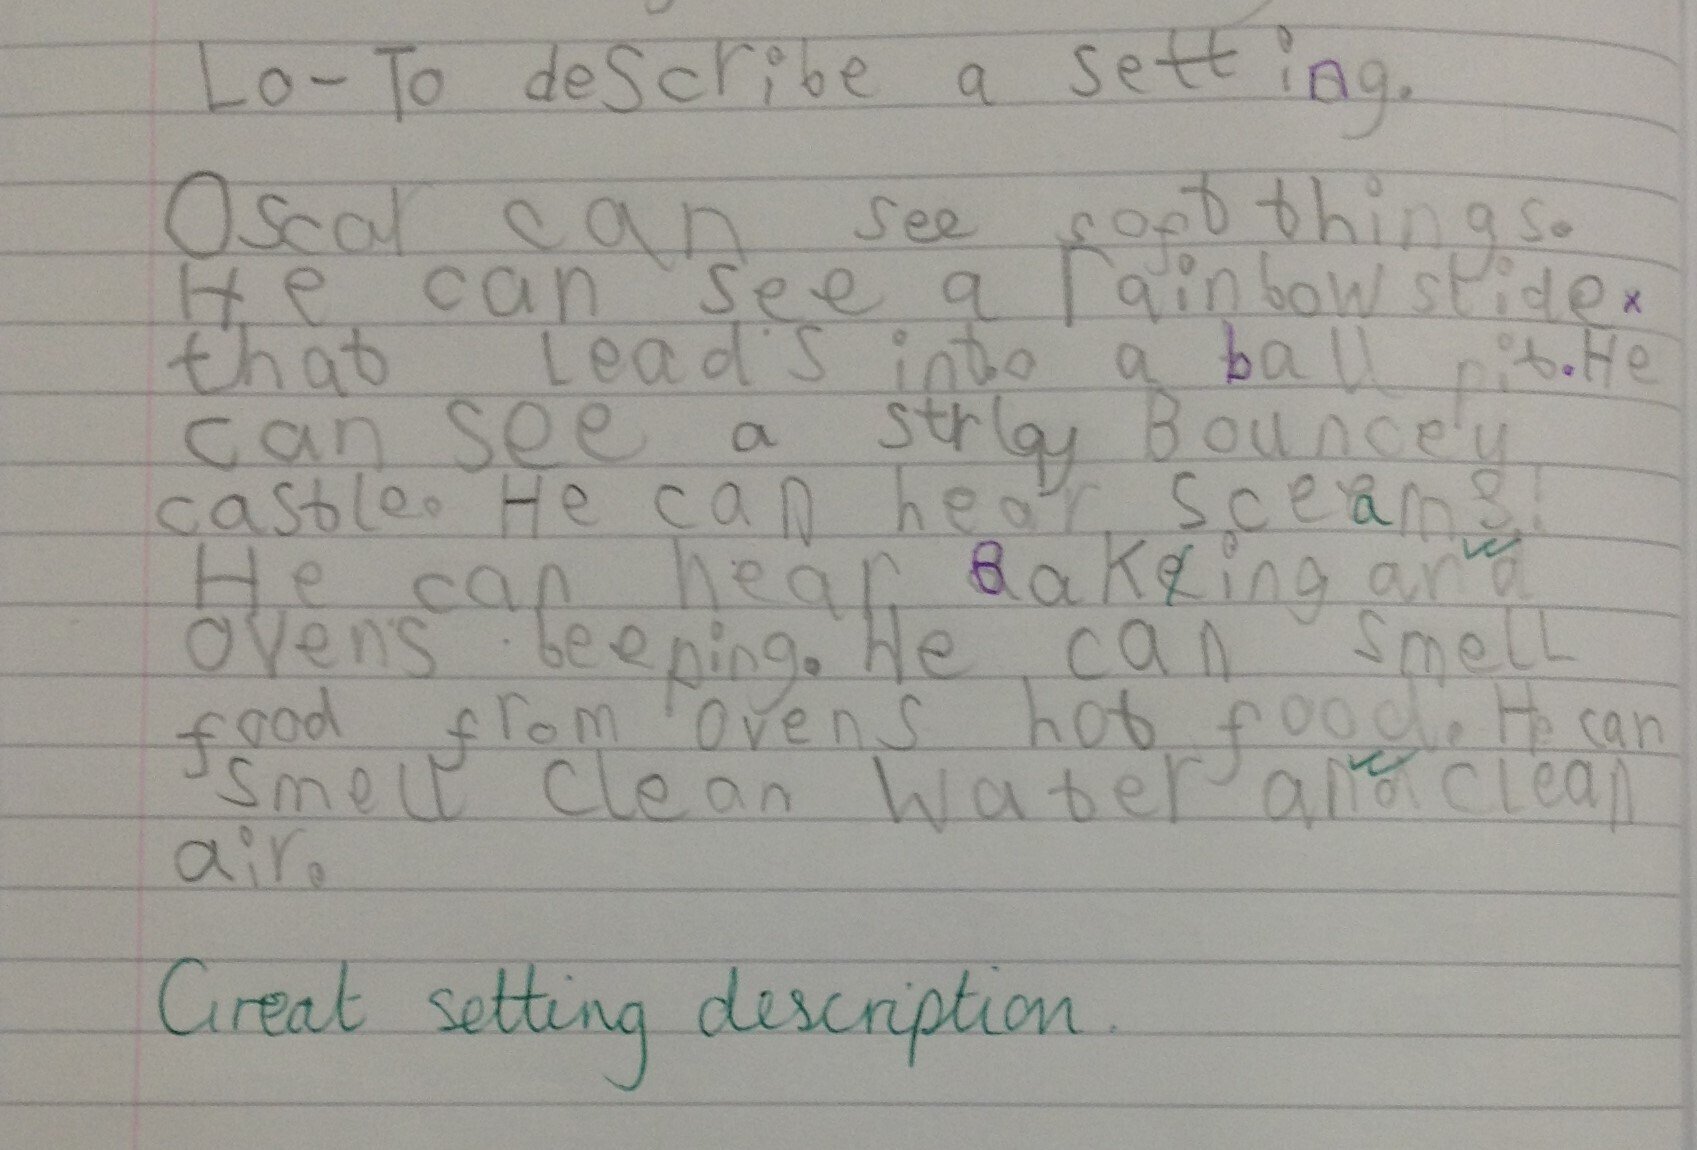 Lo-To describe a setting.
Oscar can see soft things.
He can see a rainbow slide
that leads into a ball pit. He
can see a Bouncey
castle. He can hear sceams!
He can hear Bakeing and
ovens beeping. He can smell
food from ovens hot food. He can
smell clean water and clean
air.
Great setting description.